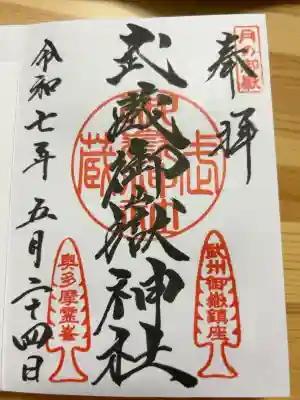 月の御嶽
奉拝
武蔵御嶽神社
武州御嶽鎮座
奥多摩霊峯
令和七年五月二十四日